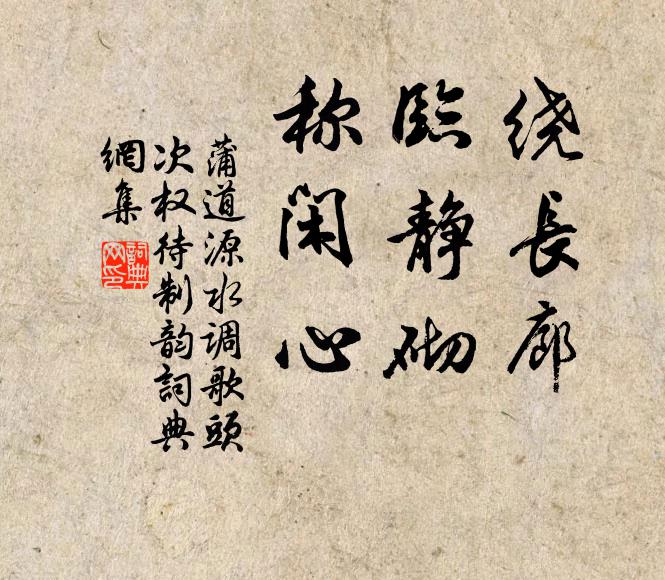 绕长廊
临静砌
称闲心
蒲道源水调歌头
次权待制韵词典
網集
詞典
网印